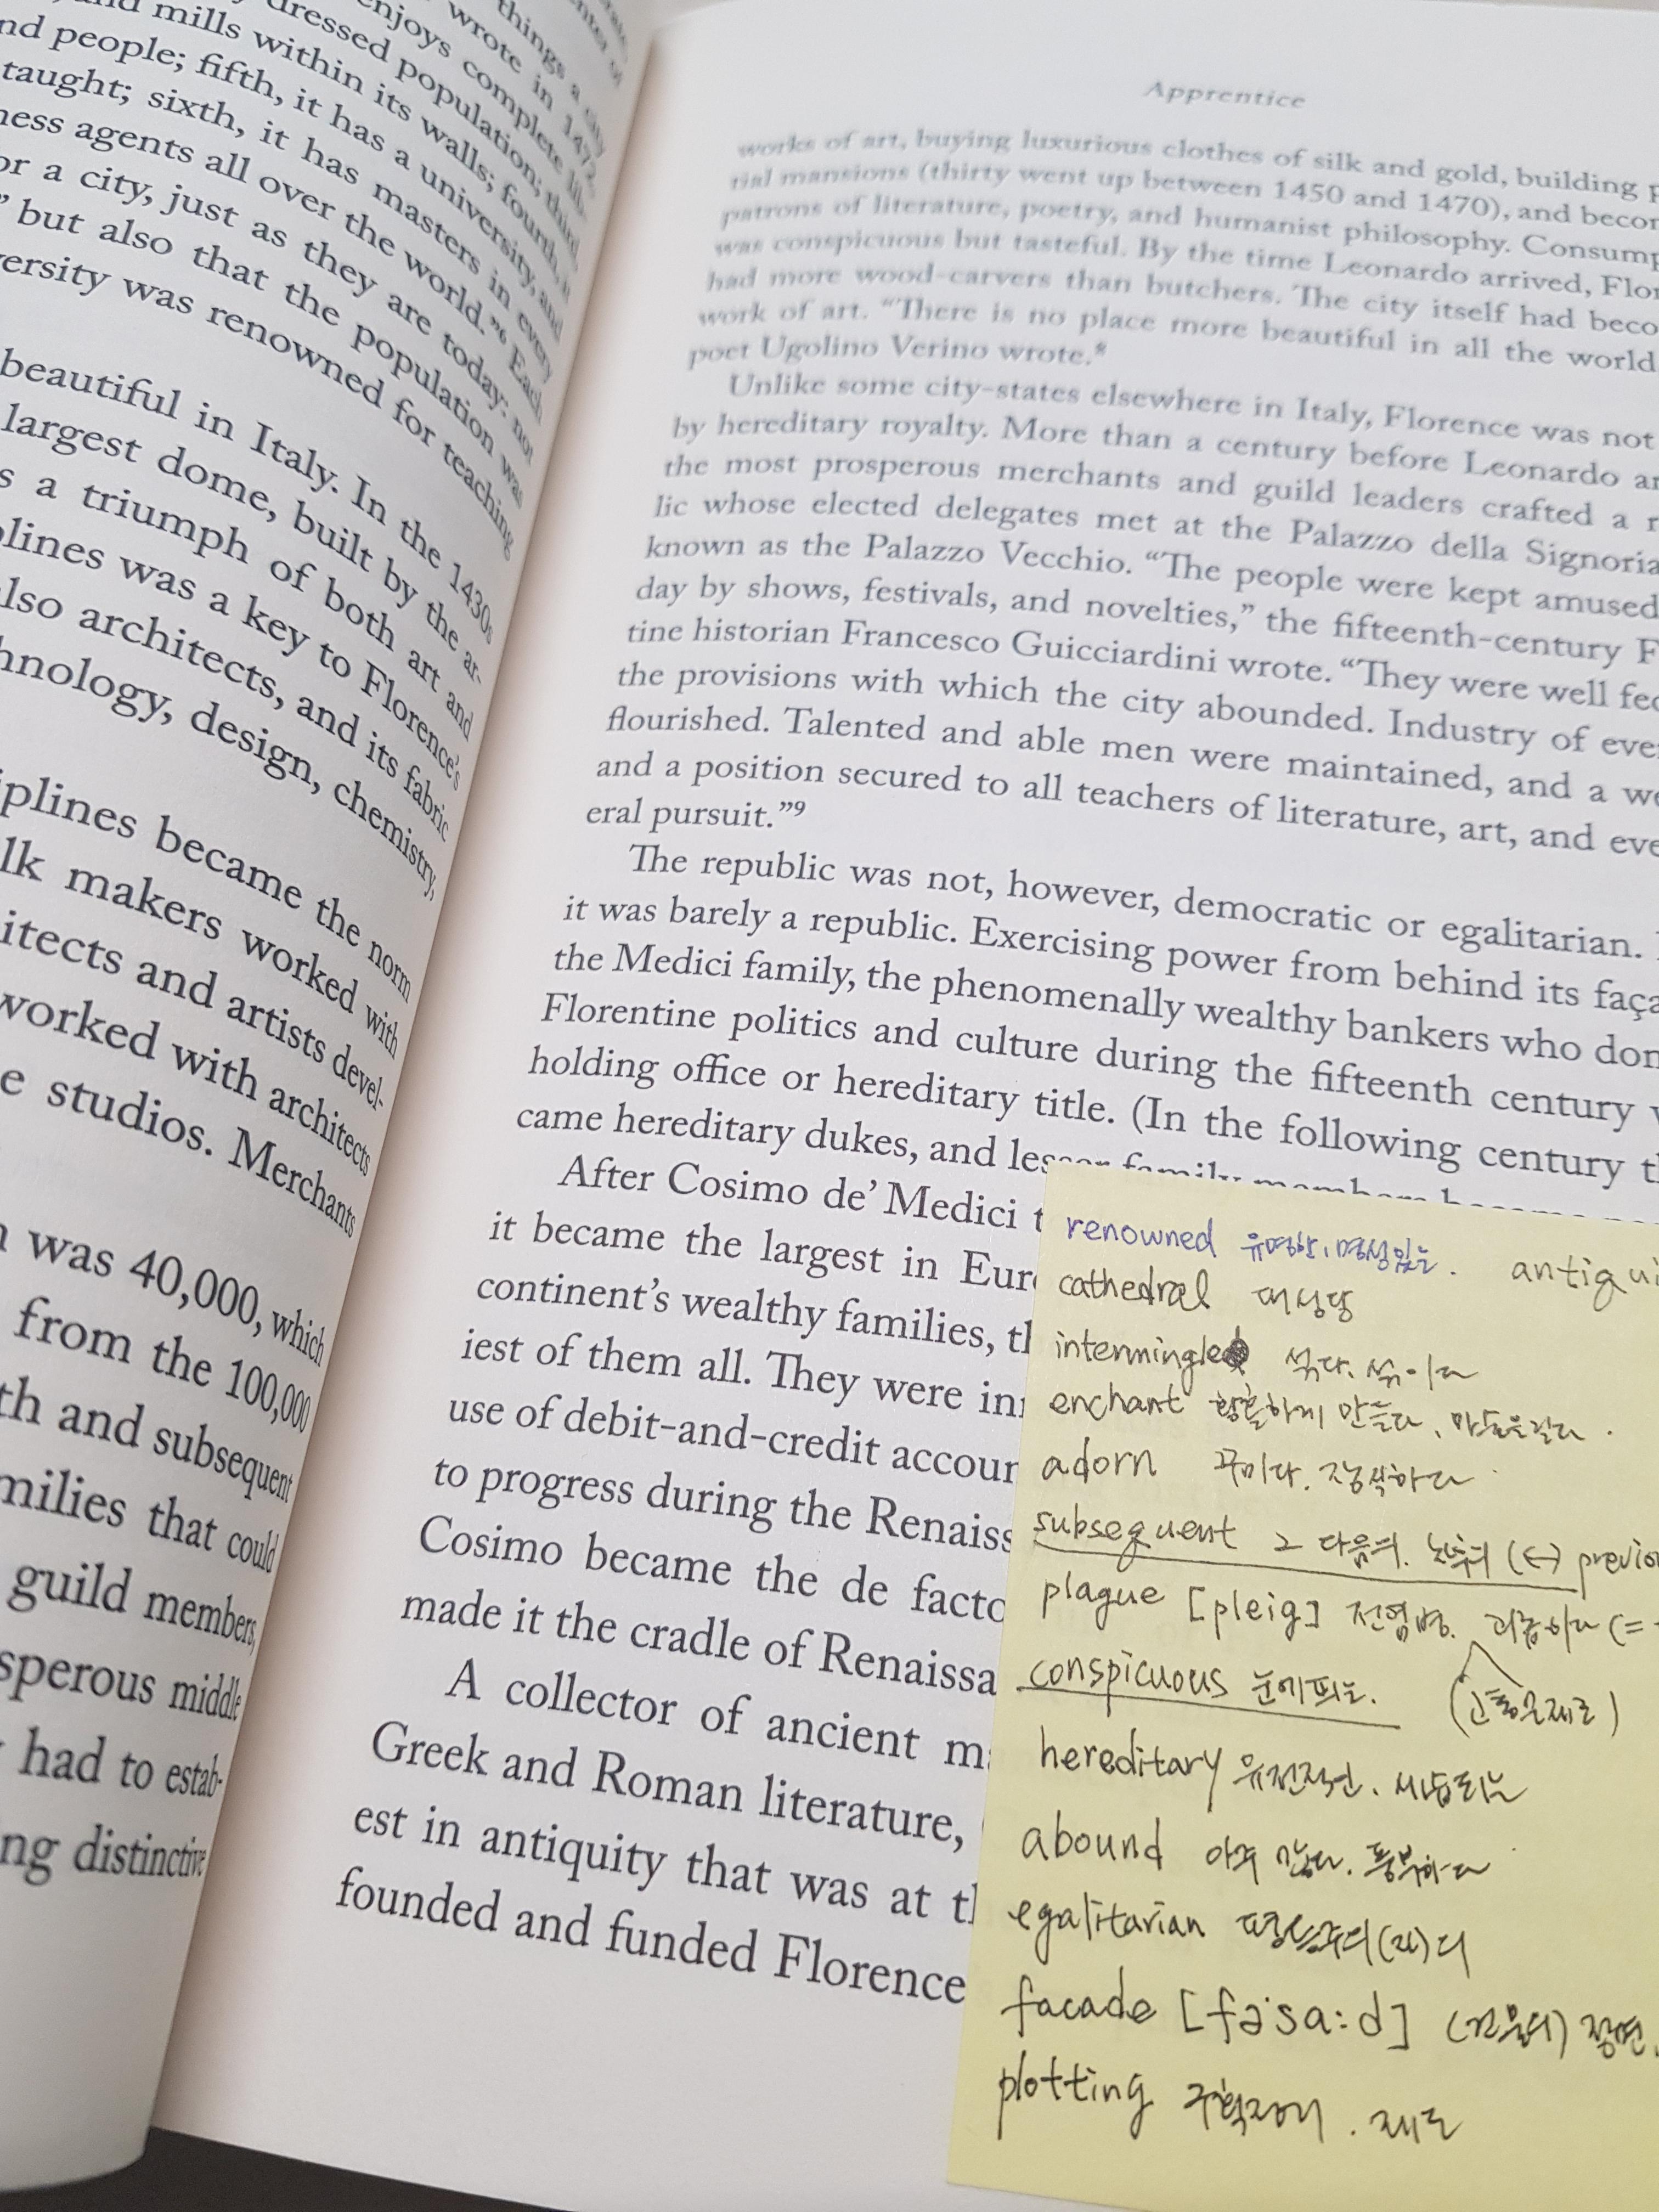 things a city
wrote in 1472.
enjoys complete lib-
dressed population; third
mills within its walls; fourth, it
nd people; fifth, it has a university, and
taught; sixth, it has masters in every
ness agents all over the world.”6 Each
or a city, just as they are today: not
” but also that the population was
versity was renowned for teaching
beautiful in Italy. In the 1430s
largest dome, built by the ar-
s a triumph of both art and
plines was a key to Florence's
lso architects, and its fabric
hnology, design, chemistry,
iplines became the norm
lk makers worked with
itects and artists devel-
worked with architects
e studios. Merchants
n was 40,000, which
from the 100,000
th and subsequent
milies that could
guild members,
sperous middle
had to estab-
ng distinctive
Apprentice
works of art, buying luxurious clothes of silk and gold, building p
tial mansions (thirty went up between 1450 and 1470), and becom
patrons of literature, poetry, and humanist philosophy. Consump
was conspicuous but tasteful. By the time Leonardo arrived, Flor
had more wood-carvers than butchers. The city itself had beco
work of art. “There is no place more beautiful in all the world
poet Ugolino Verino wrote.8
Unlike some city-states elsewhere in Italy, Florence was not
by hereditary royalty. More than a century before Leonardo ar
the most prosperous merchants and guild leaders crafted a r
lic whose elected delegates met at the Palazzo della Signoria
known as the Palazzo Vecchio. “The people were kept amused
day by shows, festivals, and novelties,” the fifteenth-century F
tine historian Francesco Guicciardini wrote. “They were well fed
the provisions with which the city abounded. Industry of eve
flourished. Talented and able men were maintained, and a we
and a position secured to all teachers of literature, art, and eve
eral pursuit.”9
The republic was not, however, democratic or egalitarian.
it was barely a republic. Exercising power from behind its faça
the Medici family, the phenomenally wealthy bankers who dom
Florentine politics and culture during the fifteenth century w
holding office or hereditary title. (In the following century th
came hereditary dukes, and lesser family members became
After Cosimo de’ Medici t
it became the largest in Euro
continent’s wealthy families, th
iest of them all. They were in
use of debit-and-credit accoun
to progress during the Renaiss
Cosimo became the de facto
made it the cradle of Renaissa
A collector of ancient m
Greek and Roman literature,
est in antiquity that was at th
founded and funded Florence
renowned 유명한, 명성있는. antiqui
cathedral 대성당
intermingle 섞다. 섞이다
enchant 황홀하게 만들다, 마술을걸다.
adorn 꾸미다. 장식하다
subsequent 그 다음의. 차후의 (↔) previou
plague [pleig] 전염병. 괴롭히다 (=
conspicuous 눈에띄는. (고통, 문제로)
hereditary 유전적인. 세습되는
abound 아주 많다. 풍부하다
egalitarian 평등주의(자)의
facade [fəˈsa:d] (건물의) 정면.
plotting 구획정리. 제도